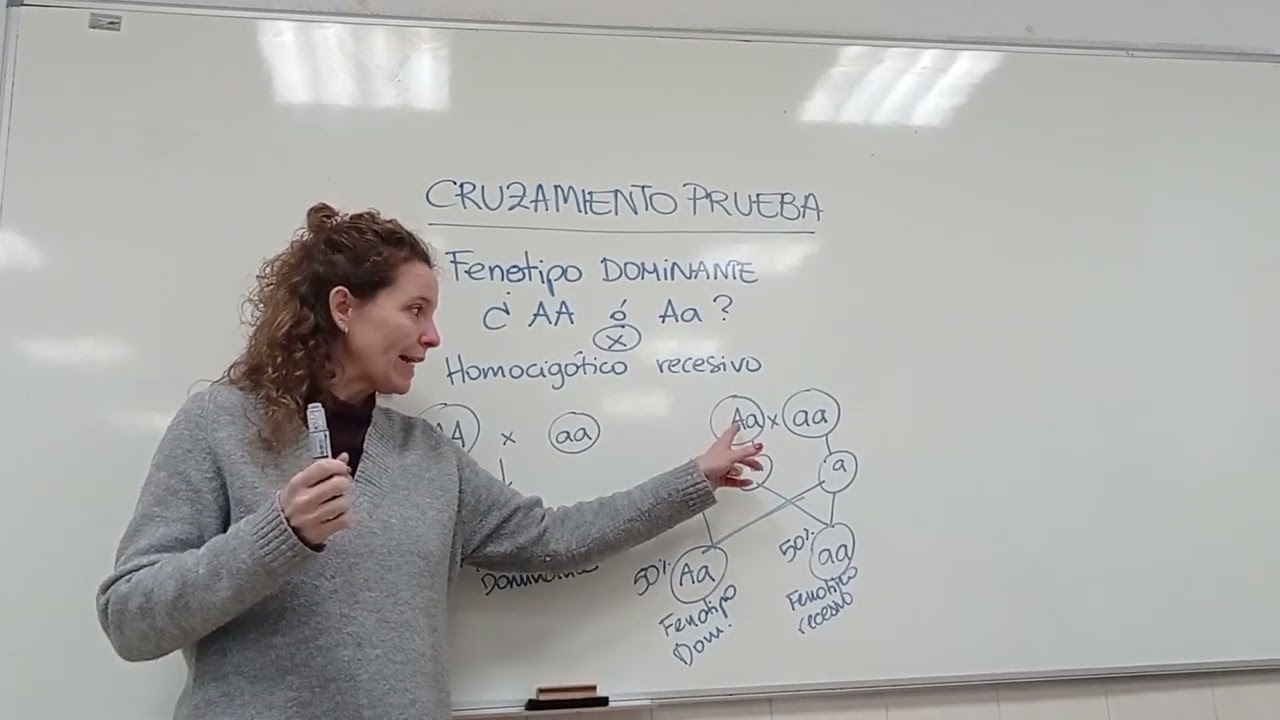 CRUZAMIENTO PRUEBA
Fenotipo DOMINANTE
¿ AA ó Aa ?
x
Homocigótico recesivo
x aa
Aa x aa
a
50% Aa
50% aa
Fenotipo
Dom.
Fenotipo
recesivo